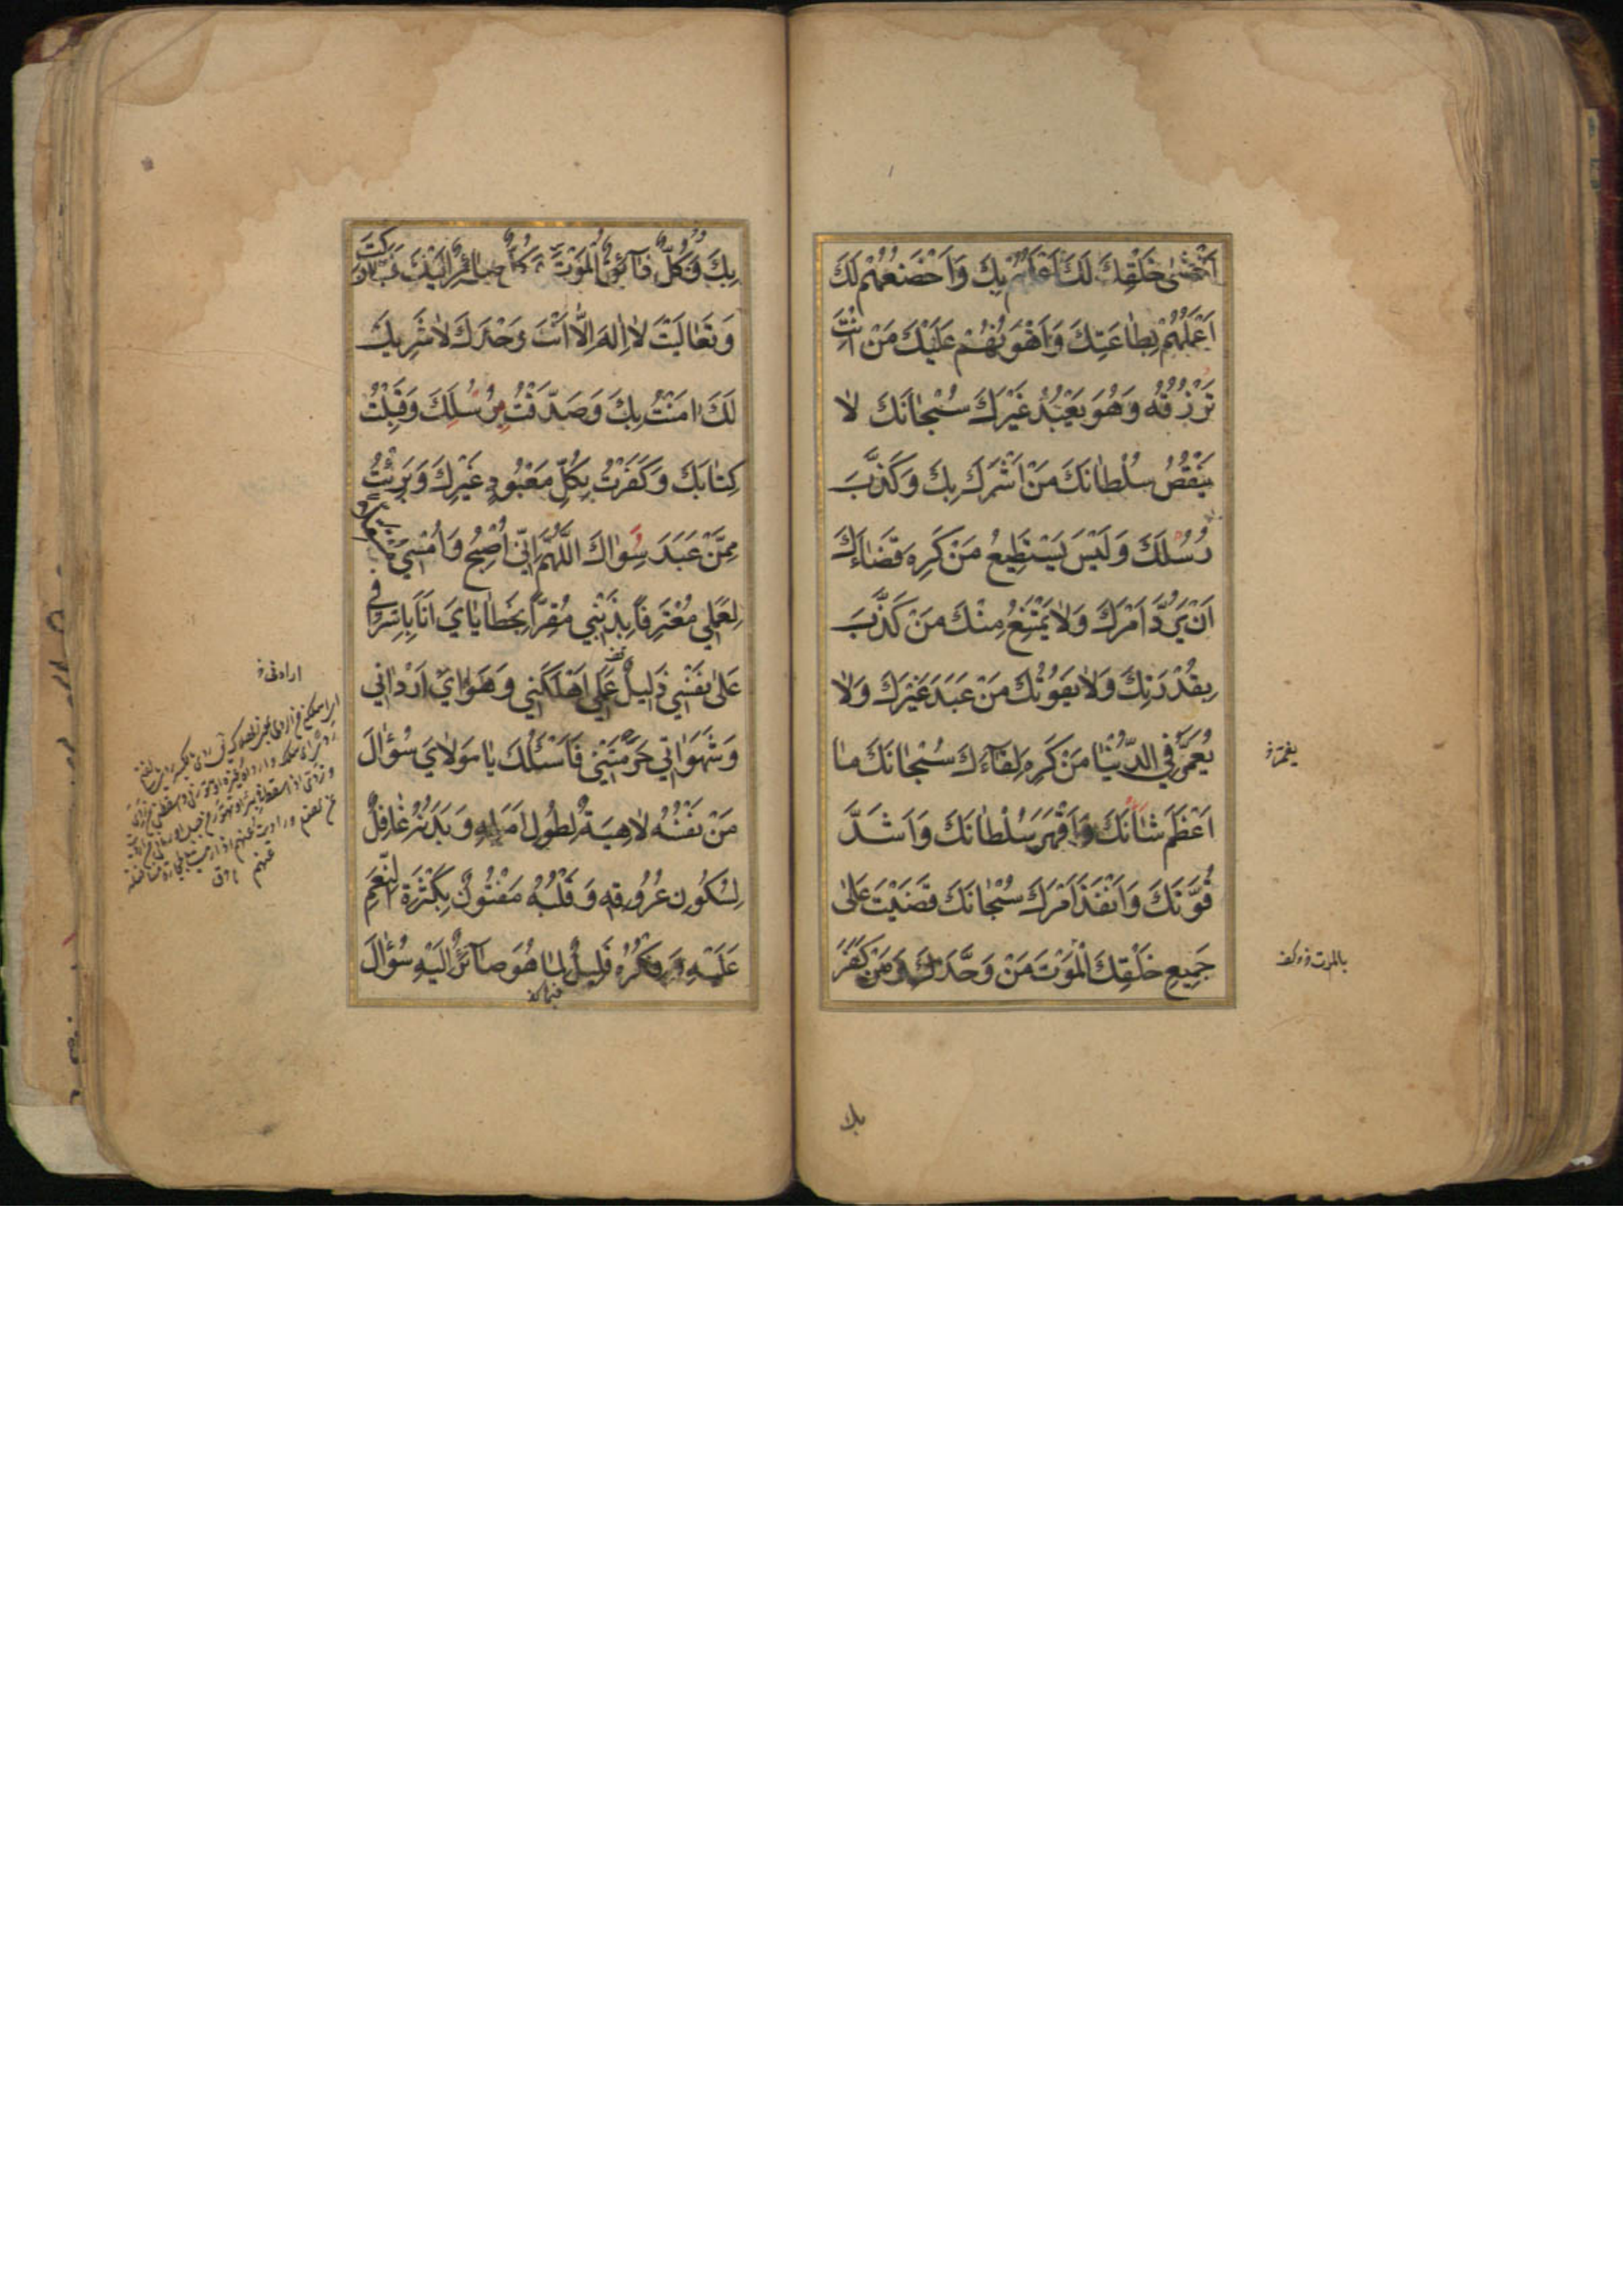 اَخْشٰى خَلْقِكَ لَكَ اَعْلَمُهُمْ بِكَ وَاَخْضَعُهُمْ لَكَ
اَعْمَلُهُمْ بِطٰاعَتِكَ وَاَهْوَنُهُمْ عَلَيْكَ مَنْ اَنْتَ
تَرْزُقُهُ وَهُوَ يَعْبُدُ غَيْرَكَ سُبْحٰانَكَ لاٰ
يَنْقُصُ سُلْطٰانَكَ مَنْ اَشْرَكَ بِكَ وَكَذَّبَ
رُسُلَكَ وَلَيْسَ يَسْتَطِيعُ مَنْ كَرِهَ قَضٰاءَكَ
اَنْ يَرُدَّ اَمْرَكَ وَلاٰ يَمْتَنِعُ مِنْكَ مَنْ كَذَّبَ
بِقُدْرَتِكَ وَلاٰ يَفُوتُكَ مَنْ عَبَدَ غَيْرَكَ وَلاٰ
يُعَمَّرُ فِي الدُّنْيٰا مَنْ كَرِهَ لِقٰآءَكَ سُبْحٰانَكَ مٰا
اَعْظَمَ شَاْنَكَ وَاَقْهَرَ سُلْطٰانَكَ وَاَشَدَّ
قُوَّتَكَ وَاَنْفَذَ اَمْرَكَ سُبْحٰانَكَ قَضَيْتَ عَلىٰ
جَمِيعِ خَلْقِكَ الْمَوْتَ مَنْ وَحَّدَكَ وَمَنْ كَفَرَ
بك
بِكَ وَكُلٌّ ذٰآئِقُ الْمَوْتِ وَكُلٌّ صٰآئِرٌ اِلَيْكَ فَتَبٰارَكْتَ
وَتَعٰالَيْتَ لاٰ اِلٰهَ اِلاّٰ اَنْتَ وَحْدَكَ لاٰ شَرِيكَ
لَكَ اٰمَنْتُ بِكَ وَصَدَّقْتُ رُسُلَكَ وَقَبِلْتُ
كِتٰابَكَ وَكَفَرْتُ بِكُلِّ مَعْبُودٍ غَيْرِكَ وَبَرِئْتُ
مِمَّنْ عَبَدَ سِوٰاكَ اَللّٰهُمَّ اِنِّي اُصْبِحُ وَاُمْسِي مُسْتَقِلاًّ
لِعَمَلِي مُعْتَرِفًا بِذَنْبِي مُقِرًّا بِخَطٰايٰايَ اَنَا بِاِسْرٰافِي
عَلىٰ نَفْسِي ذَلِيلٌ عَمَلِي اَهْلَكَنِي وَهَوٰايَ اَرْدٰانِي
وَشَهَوٰاتِي حَرَمَتْنِي فَاَسْئَلُكَ يٰا مَوْلاٰيَ سُؤٰالَ
مَنْ نَفْسُهُ لاٰهِيَةٌ لِطُولِ اَمَلِهِ وَبَدَنُهُ غٰافِلٌ
لِسُكُونِ عُرُوقِهِ وَقَلْبُهُ مَفْتُونٌ بِكَثْرَةِ النِّعَمِ
عَلَيْهِ وَفِكْرُهُ قَلِيلٌ لِمٰا هُوَ صٰآئِرٌ اِلَيْهِ سُؤٰالَ